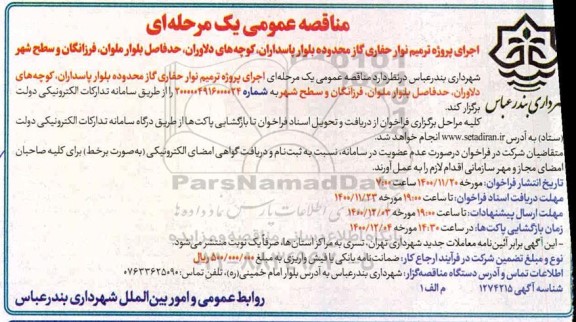 مناقصه عمومی یک مرحله‌ای
اجرای پروژه ترمیم نوار حفاری گاز محدوده بلوار پاسداران، کوچه‌های دلاوران، حدفاصل بلوار ملوان، فرزانگان و سطح شهر
شهرداری بندرعباس درنظردارد مناقصه عمومی یک مرحله‌ای اجرای پروژه ترمیم نوار حفاری گاز محدوده بلوار پاسداران، کوچه‌های
دلاوران، حدفاصل بلوار ملوان، فرزانگان و سطح شهر به شماره ۲۰۰۰۰۰۴۹۱۶۰۰۰۰۲۴ را از طریق سامانه تدارکات الکترونیکی دولت
برگزار کند.
کلیه مراحل برگزاری فراخوان از دریافت و تحویل اسناد فراخوان تا بازگشایی پاکت‌ها از طریق درگاه سامانه تدارکات الکترونیکی دولت
(ستاد) به آدرس www.setadiran.ir انجام خواهد شد.
متقاضیان شرکت در فراخوان درصورت عدم عضویت در سامانه، نسبت به ثبت‌نام و دریافت گواهی امضای الکترونیکی (به‌صورت برخط) برای کلیه صاحبان
امضای مجاز و مهر سازمانی اقدام لازم را به عمل آورند.
تاریخ انتشار فراخوان: مورخه ۱۴۰۰/۱۱/۲۰ ساعت ۷:۰۰
مهلت دریافت اسناد فراخوان: تا ساعت ۱۹:۰۰ مورخه ۱۴۰۰/۱۱/۲۳
مهلت ارسال پیشنهادات: تا ساعت ۱۹:۰۰ مورخه ۱۴۰۰/۱۲/۰۳
زمان بازگشایی پاکت‌ها: در ساعت ۱۴:۳۰ مورخه ۱۴۰۰/۱۲/۰۴
- این آگهی برابر آئین‌نامه معاملات جدید شهرداری تهران، تسری به مراکز استان‌ها، صرفاً یک نوبت منتشر می‌شود.
نوع و مبلغ تضمین شرکت در فرآیند ارجاع کار: ضمانت‌نامه بانکی یا فیش واریزی به مبلغ ۵۰۰/۰۰۰/۰۰۰ ریال
اطلاعات تماس و آدرس دستگاه مناقصه‌گزار: شهرداری بندرعباس به آدرس بلوار امام خمینی(ره)، تلفن تماس: ۰۷۶۳۳۶۲۵۰۹۰
شناسه آگهی ۱۲۷۴۲۱۵ م الف ۱
روابط عمومی و امور بین‌الملل شهرداری بندرعباس
شهرداری بندرعباس
ParsNamadData